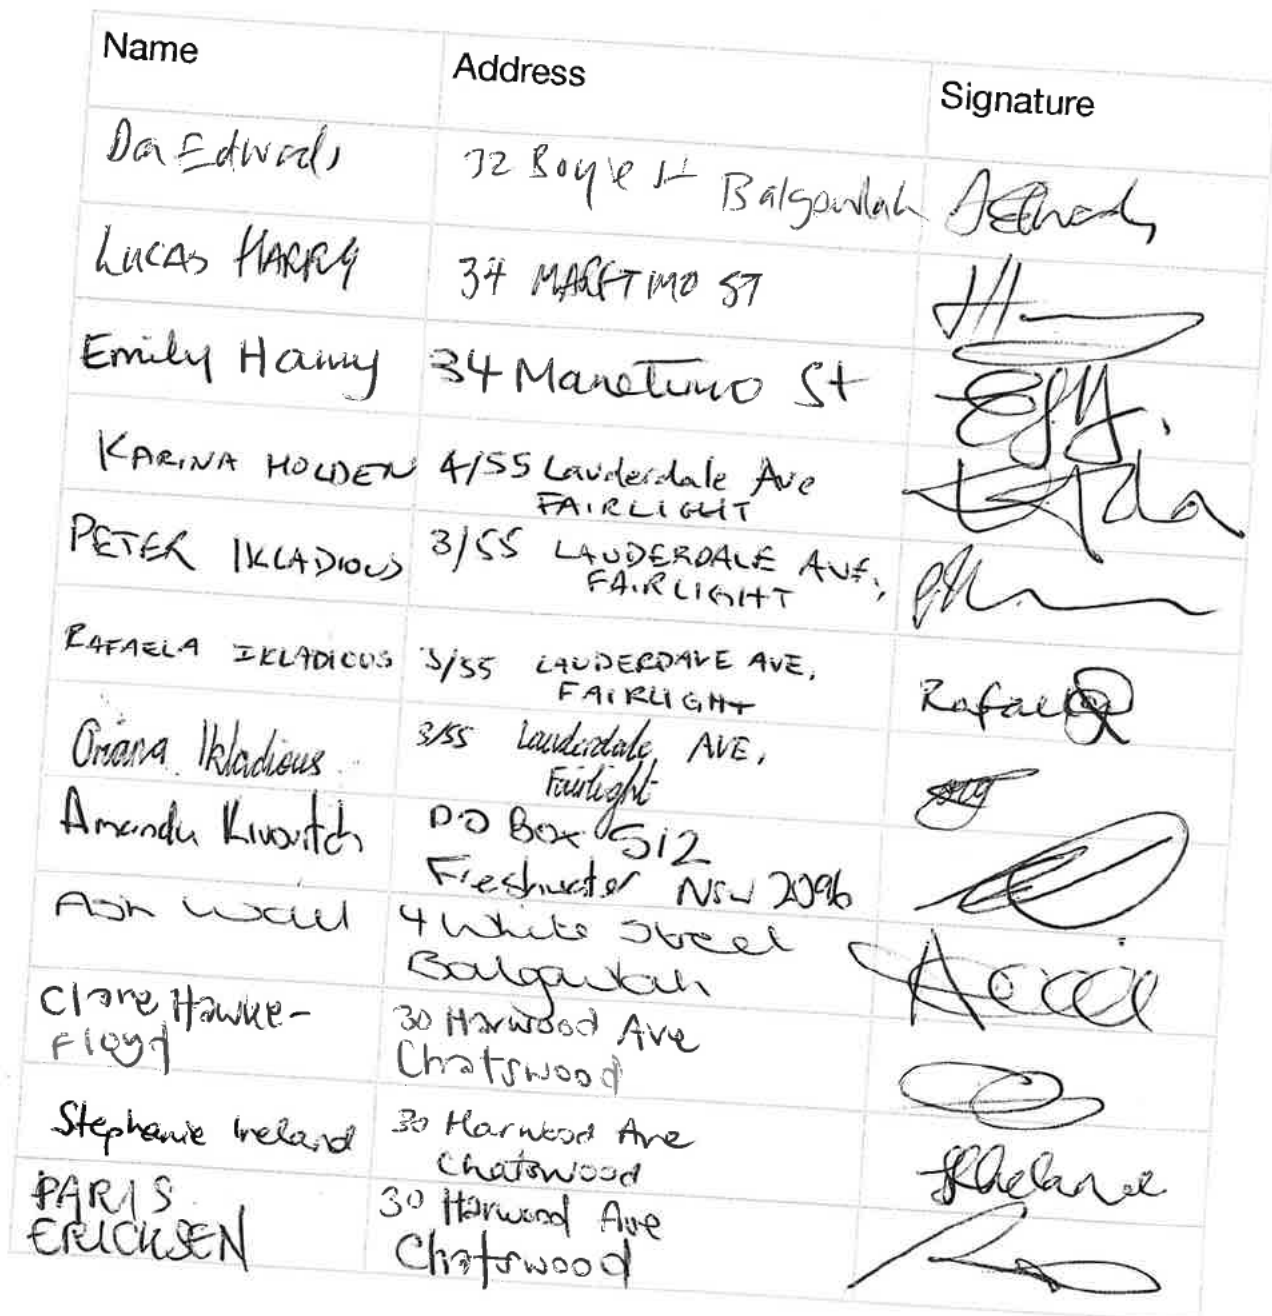 Name Address Signature
Edwards Boyle St Balgowlah
LUCAS HARRY 34 ST
Emily Harry 34 St
KARINA HOLDEN 4/55 Lauderdale Ave
FAIRLIGHT
PETER IKLADIOUS 3/55 LAUDERDALE AVE,
FAIRLIGHT
RAFAELA IKLADIOUS 3/55 LAUDERDALE AVE,
FAIRLIGHT
Rafaela
Oriana Ikladious 3/55 Lauderdale AVE,
Fairlight
Amanda PO Box 512
Freshwater NSW 2096
Ash 4 White Street
Balgowlah
Clare Hawke-
Floyd
30 Harwood Ave
Chatswood
Stephanie Ireland 30 Harwood Ave
Chatswood
PARIS
ERICKSEN
30 Harwood Ave
Chatswood